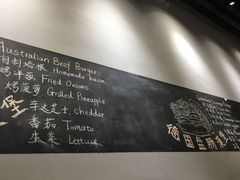 Australian Beef Burger
自制培根 Homemade bacon
烤洋葱 Fried Onions
烤菠萝 Grilled Pineapple
堡 车达芝士 cheddar
番茄 Tomato
生菜 Lettuce
德国